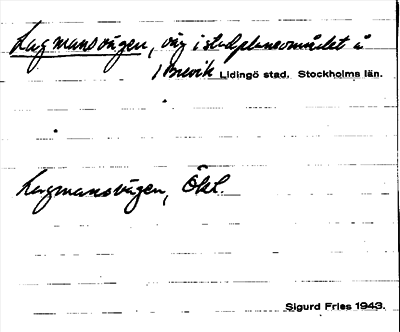 Lagmansvägen, väg i stadplansområdet å
Brevik Lidingö stad. Stockholms län.
Lagmansvägen, Ökl.
Sigurd Fries 1943.